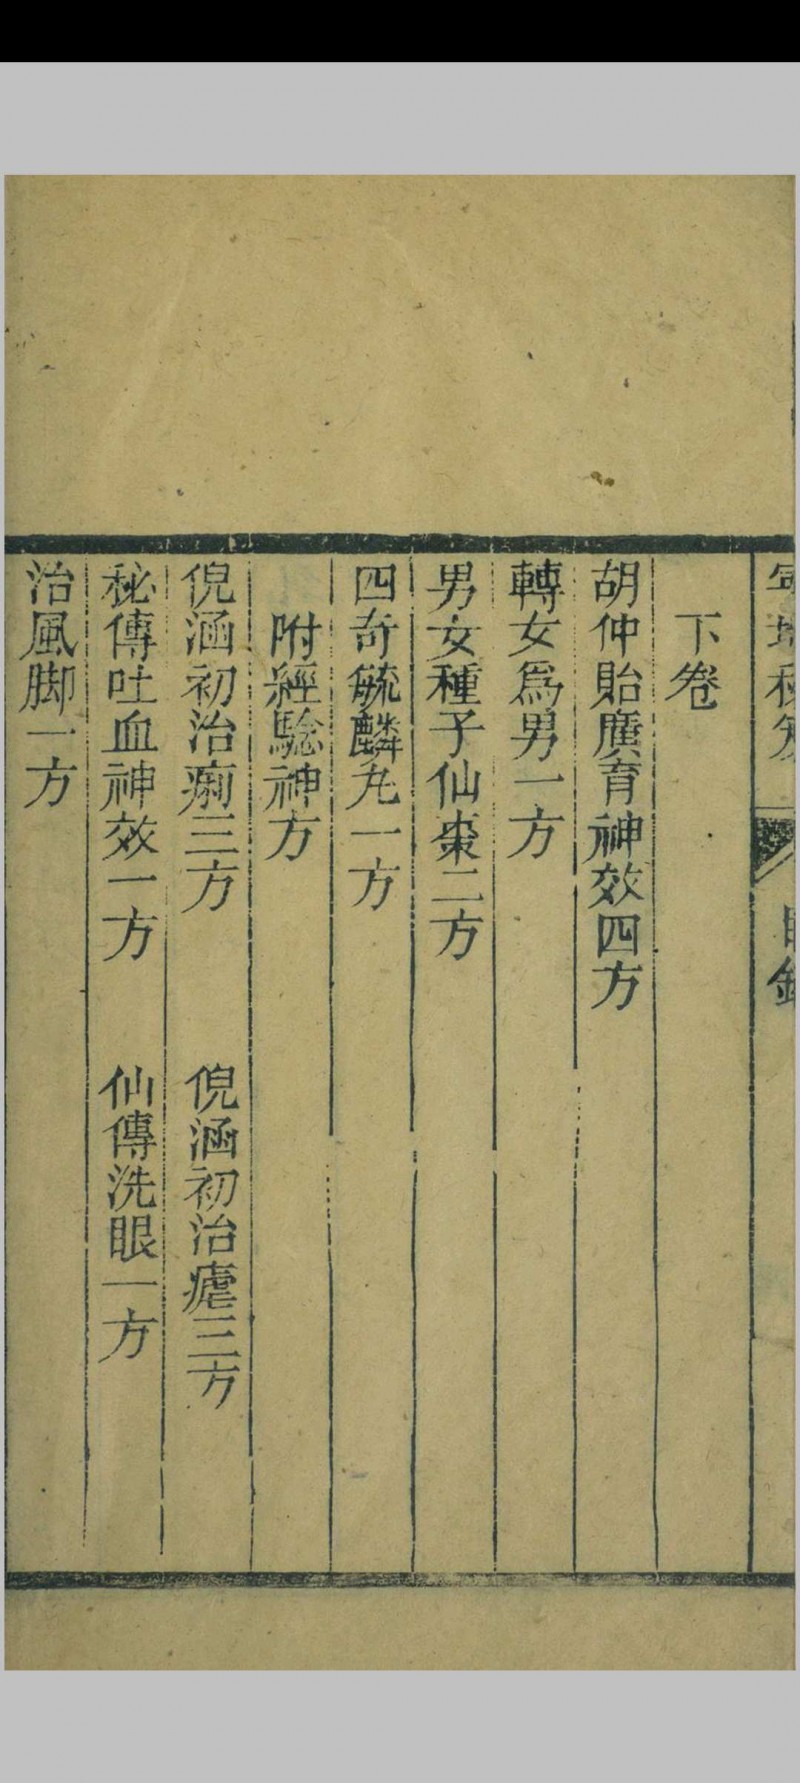 目錄
下卷
胡仲貽廣育神效四方
轉女爲男一方
男女種子仙棗二方
四奇毓麟丸一方
附經驗神方
倪涵初治痢三方　倪涵初治瘧三方
秘傳吐血神效一方　仙傳洗眼一方
治風脚一方